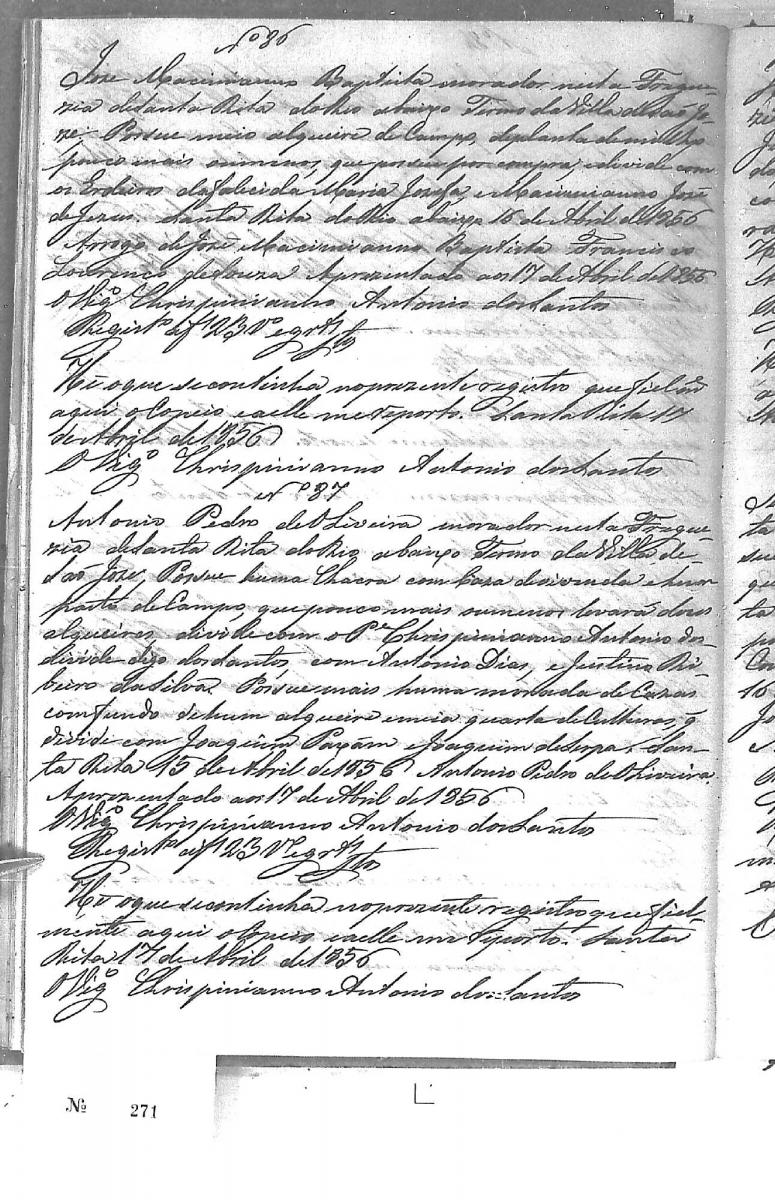 Nº 86
Joze Macimianno Baptista morador nesta Fregue-
zia de Santa Rita do Rio abaixo Termo da Villa de Saõ Jo-
ze Possue meio alqueire de Campo, de planta de milho
pouco mais ou menos, que possue por compra, e divide com
os Erdeiros da falecida Maria Jozefa, e Macimianno José
de Jezus. Santa Rita do Rio abaixo 16 de Abril de 1856
Arrogo de José Macimianno Baptista Francisco
Lourenço de Souza Aprezentado aos 17 de Abril de 1856
O Vigº Chrispinianno Antonio dos Santos
Registº a f 123 Vº e gr
He o que se continha no prezente registro que fielm
aqui o Copeio e a elle me reporto. Santa Rita 17
de Abril de 1856
O Vigº Chrispinianno Antonio dos Santos
Nº 87
Antonio Pedro de Oliveira morador nesta Fregue-
zia de Santa Rita do Rio abaixo Termo da Villa de
Saõ Joze Possue huma Chacra com Caza de vivenda e huma
parte de Campo, que pouco mais ou menos levara dous
alqueires, divide com o Pe Chrispinianno Antonio dos
divide digo dos Santos, com António Dias, e Justino Ri-
beiro da Silva. Possue mais huma morada de Cazas
com fundo de hum alqueire e meia quarta de Culturas, q
divide com Joaquim Payám e Joaquim de Serpa. San-
ta Rita 15 de Abril de 1856 Antonio Pedro de Oliveira
Aprezentado aos 17 de Abril de 1856
O Vigº Chrispinianno Antonio dos Santos
Registº a f 123 Vº e gr
He o que se continha no prezente registro, que fiel-
mente aqui o Copeio e a elle me reporto. Santa
Rita 17 de Abril de 1856
O Vigº Chrispinianno Antonio dos Santos
№ 271